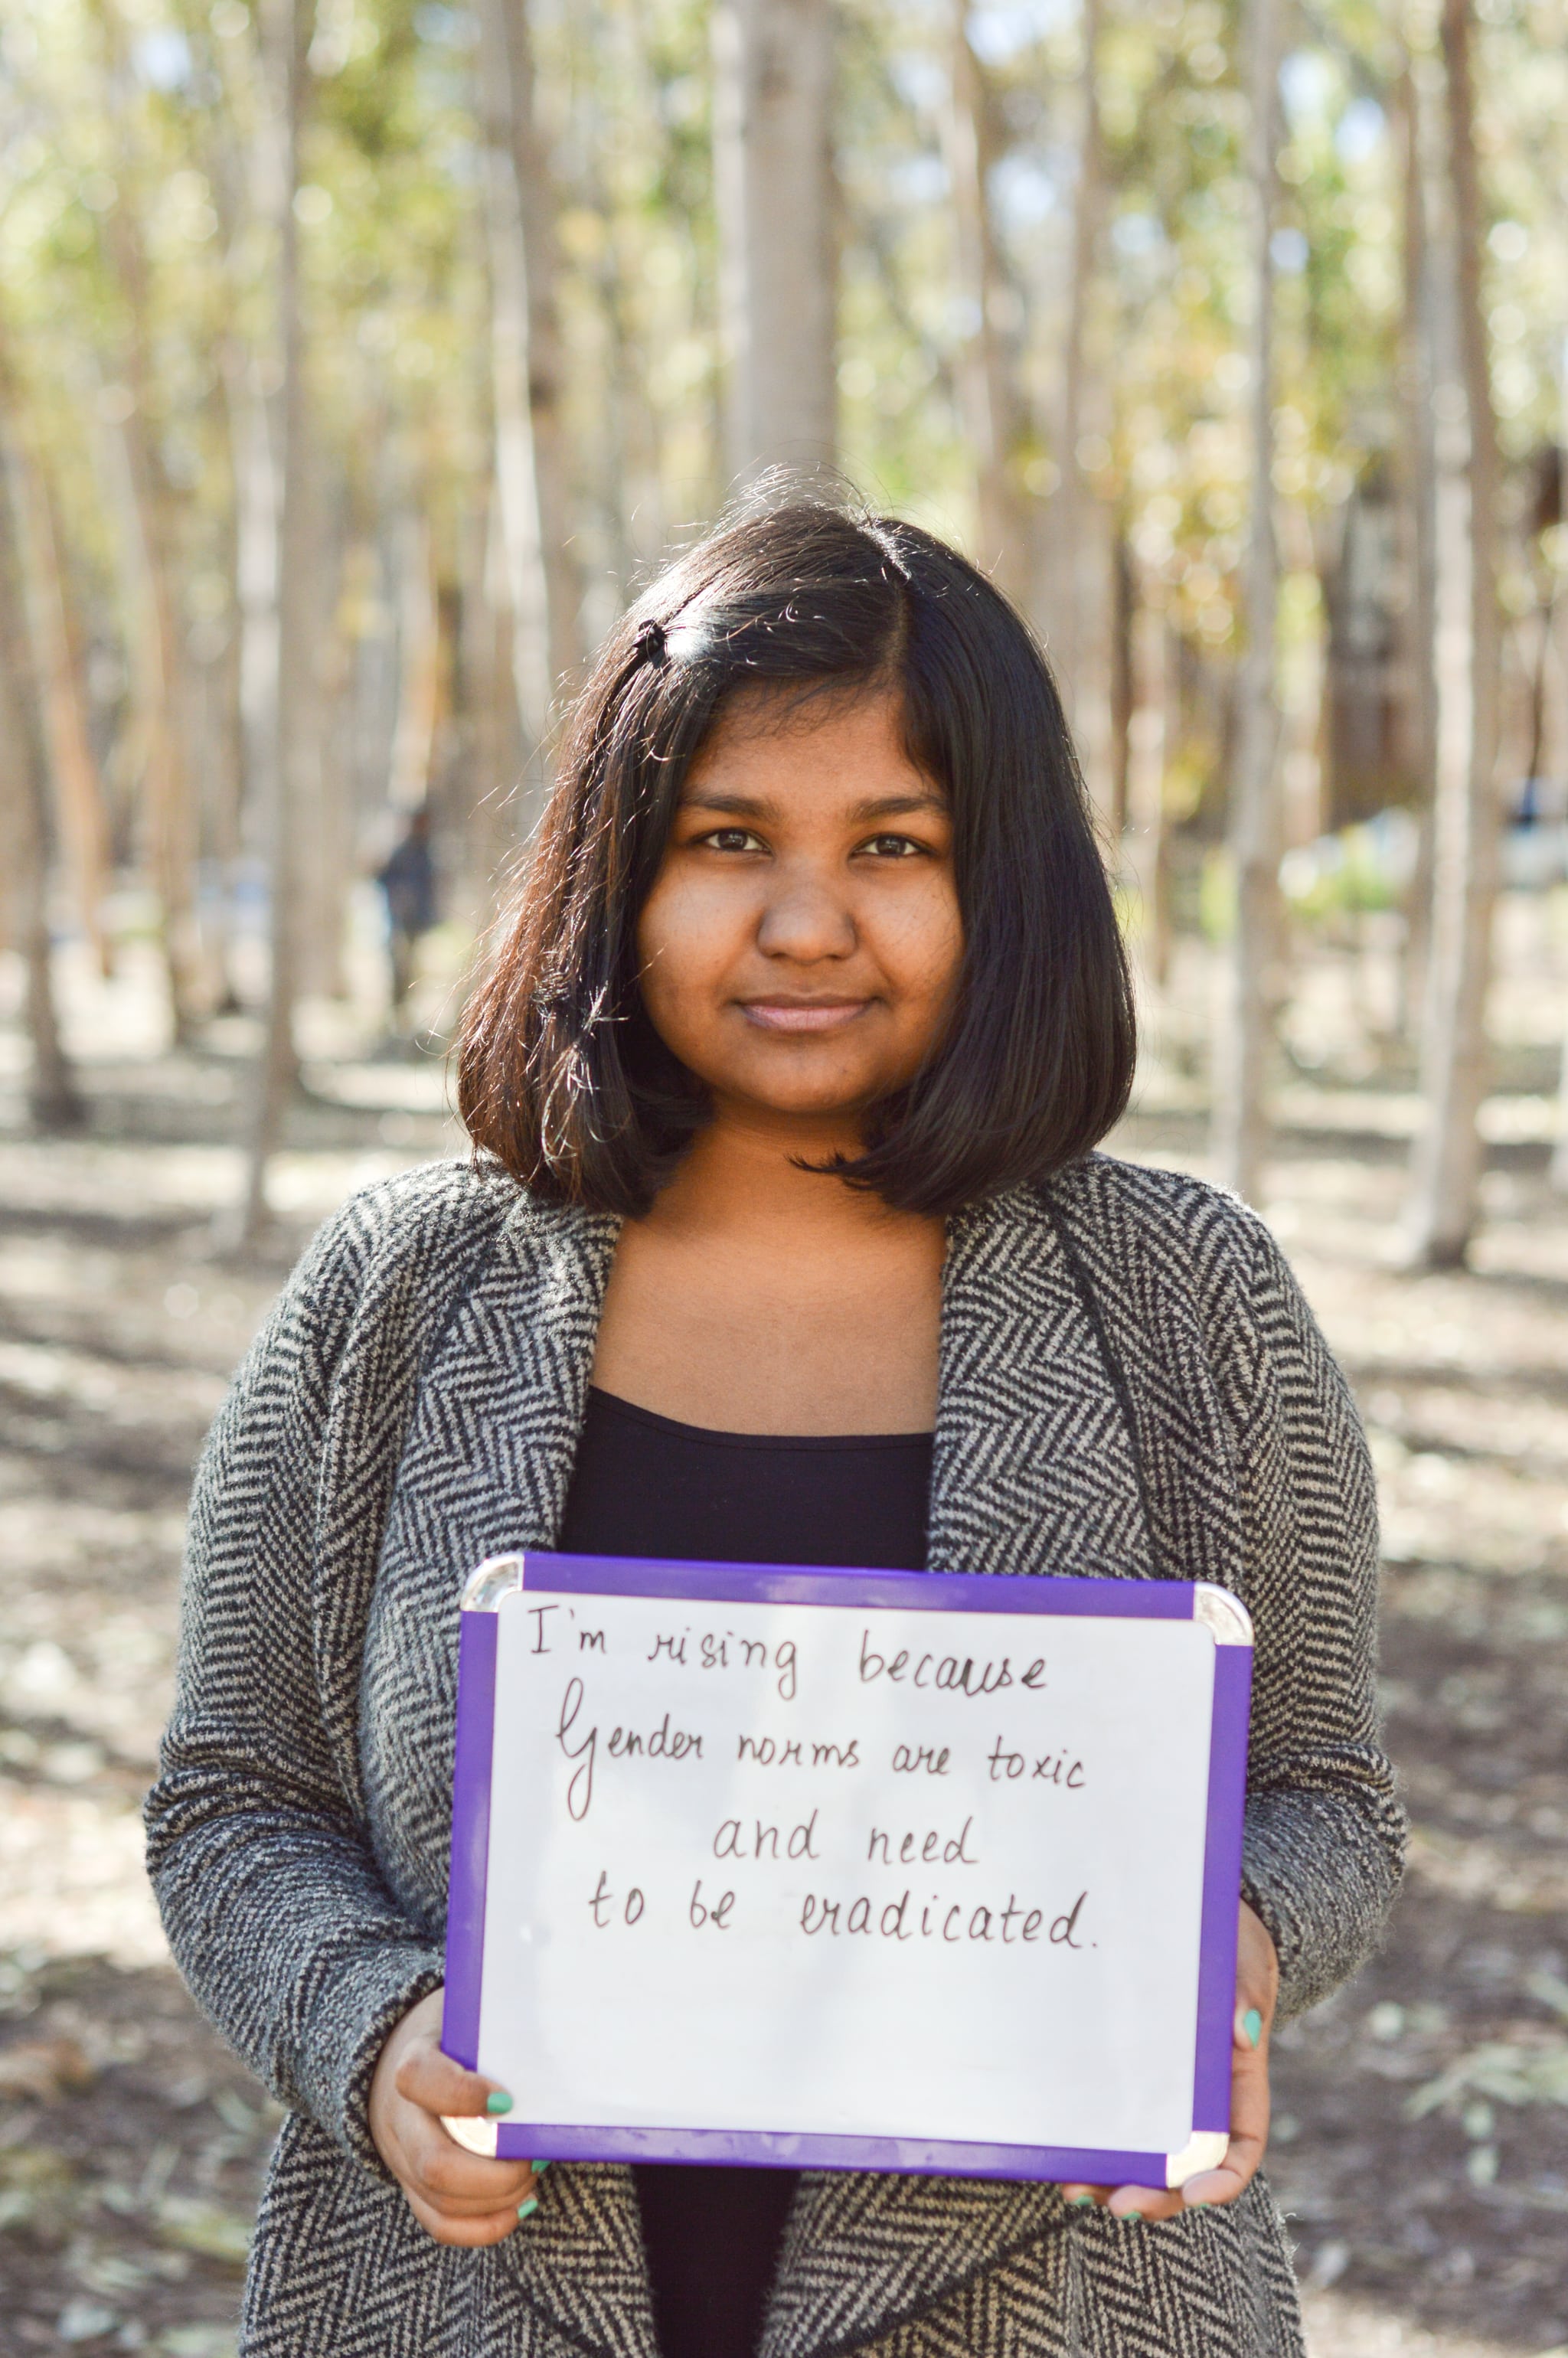 I'm rising because
Gender norms are toxic
and need
to be eradicated.